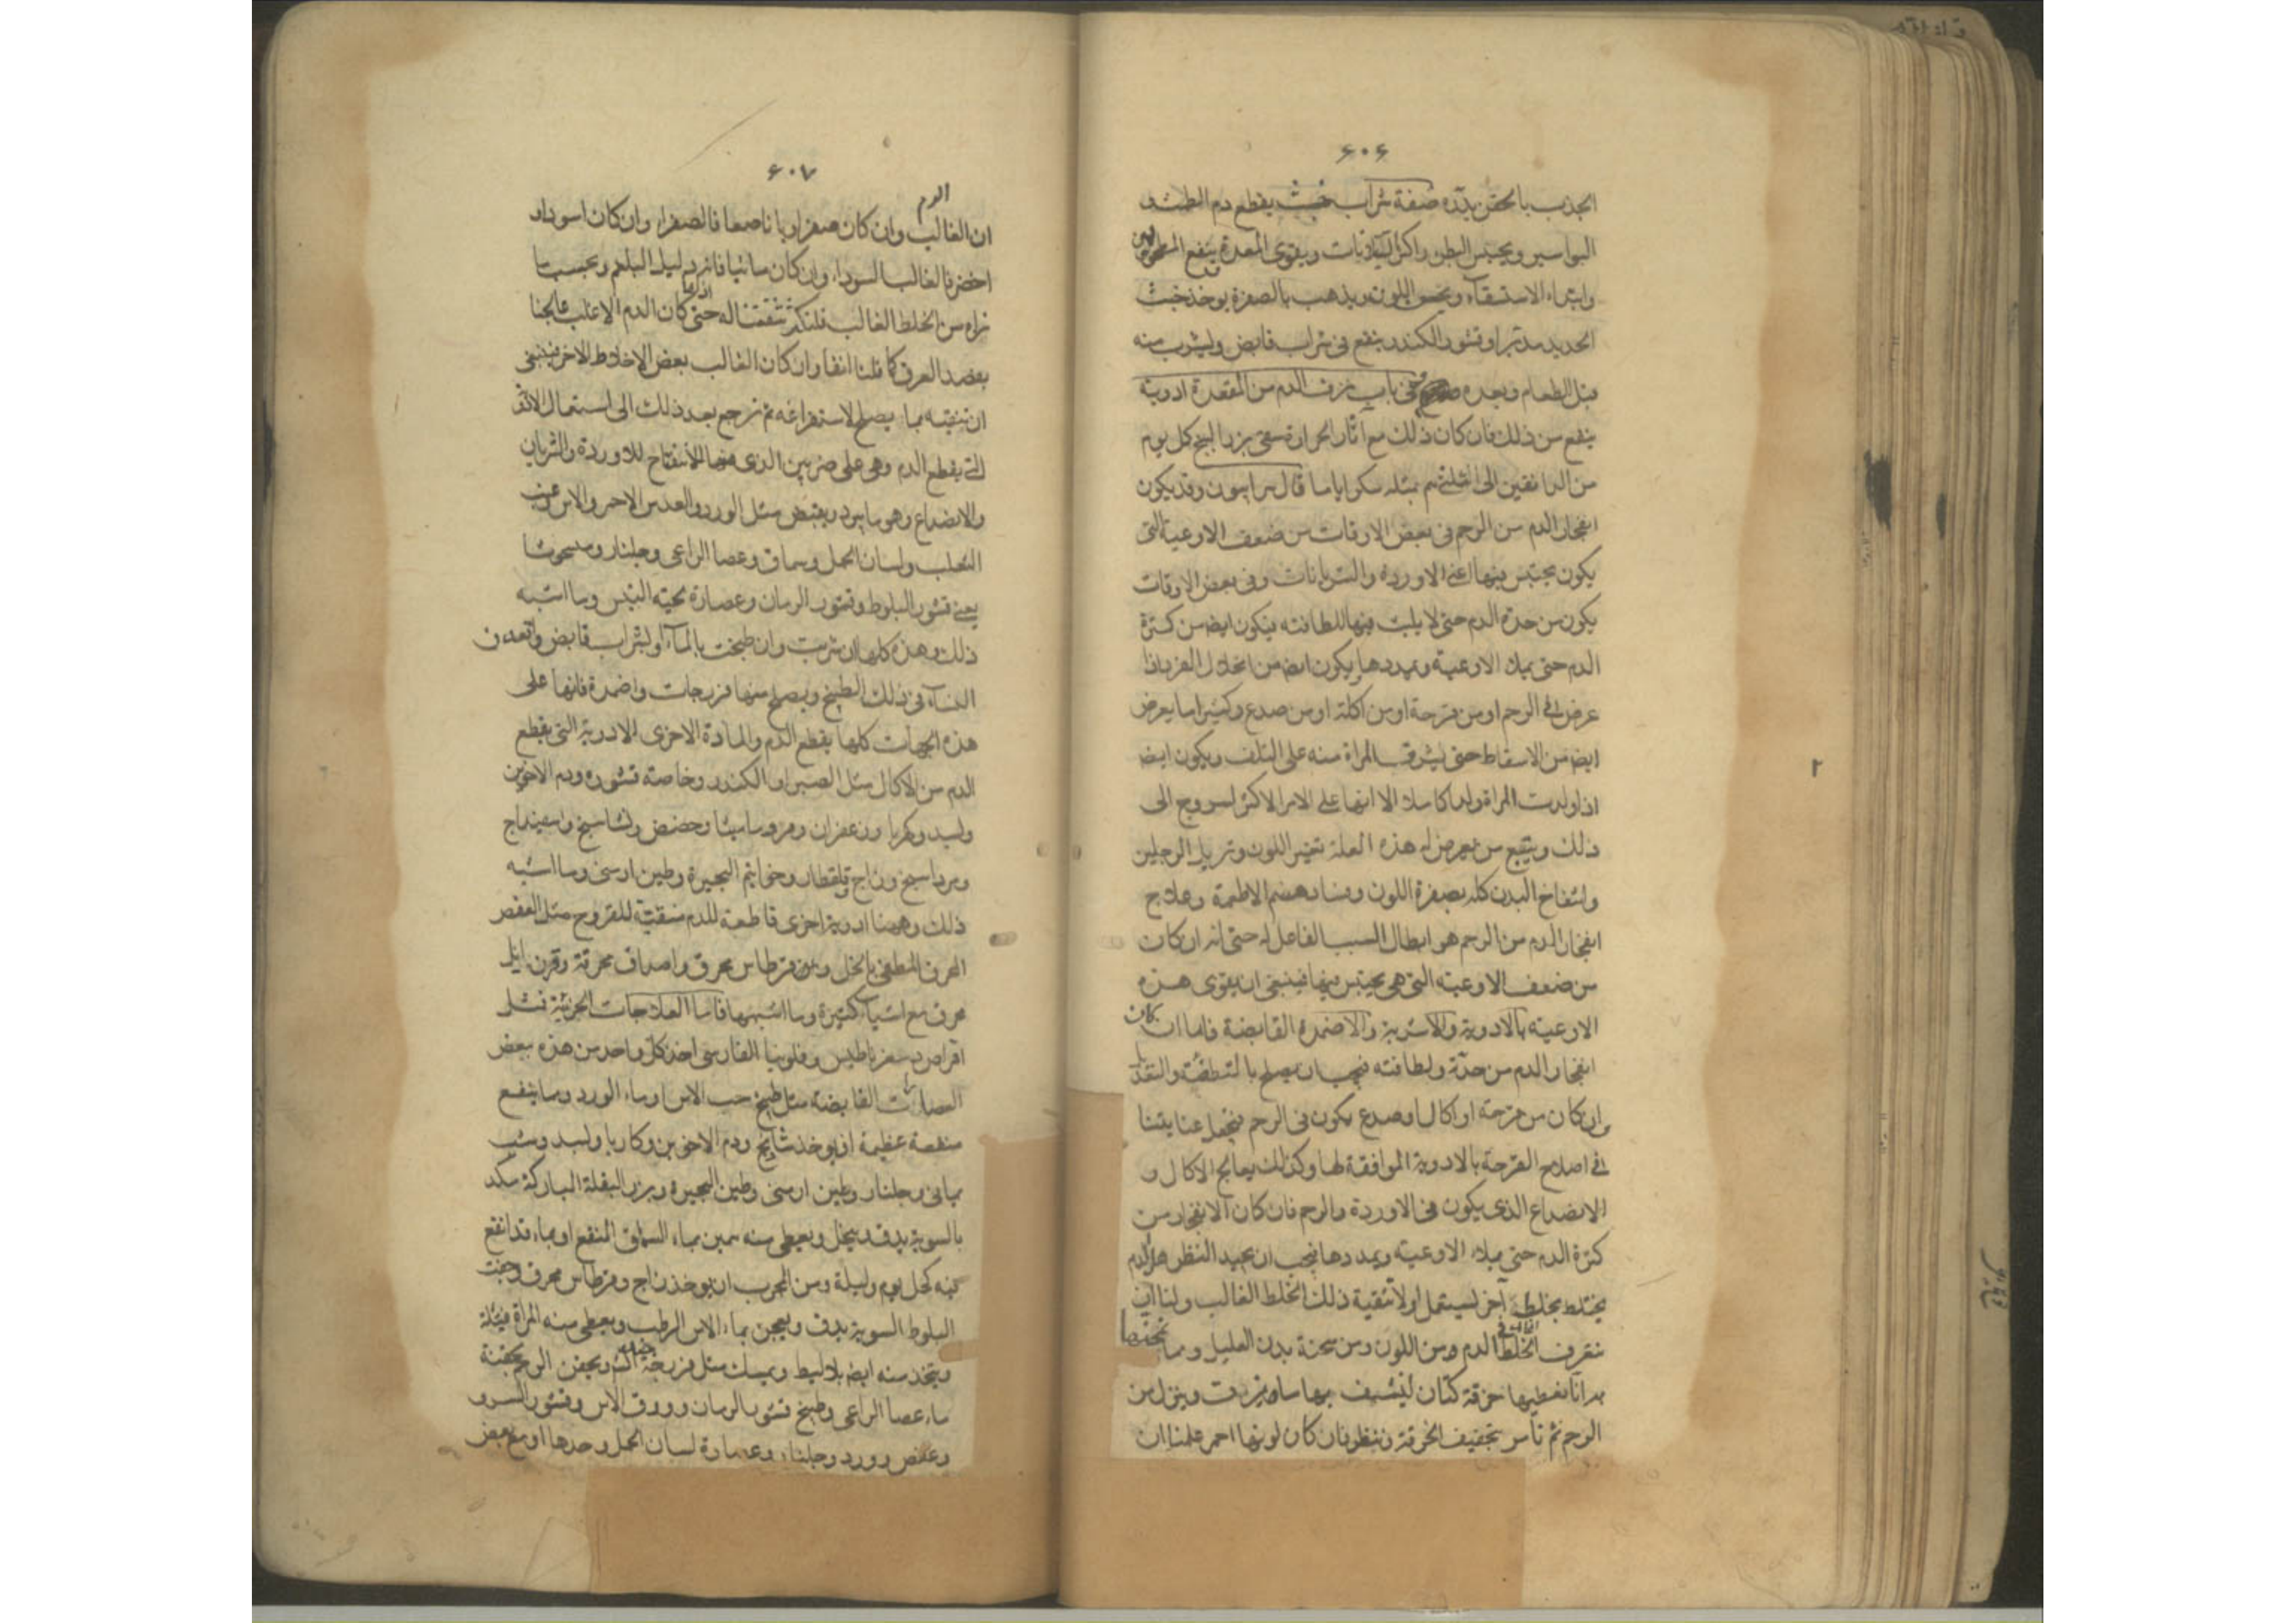 ۶۰۶
الجذب بالمحقن بدّه صفة شراب خبث يقطع دم الطمث و
البواسير ويحبس البطن ويقوى المعدة ينفع
وابتداء الاستسقاء ويحسن اللون ويذهب بالصفرة يوخذ خبث
الحديد مدبّر او قشور الكندر ينقع فى شراب قابض ويشرب منه
قبل الطعام وبعده فى باب نزف الدم من المقعدة ادوية
ينفع من ذلك فان كان ذلك مع آثار الحرارة سقى بزر البنج كل يوم
من الدانقين الى بمثله سكر اياما قال سرابيون وقد يكون
انفجار الدم من الرحم فى بعض الاوقات من ضعف الاوعية التى
يكون يحتبس فيها اعنى الاوردة والشريانات وفى بعض الاوقات
يكون من حدة الدم حتى لا يلبث فيها للطافته فيكون ايضا من كثرة
الدم حتى يملا الاوعية ويمددها ويكون ايضا من انحلال الفرد اذا
عرض فى الرحم او من قرحة او من اكلة او من صدع وكثيرا ما يعرض
ايضا من الاسقاط حتى يشرف المراة منه على التلف ويكون ايضا
اذا ولدت المراة ولدا كاملا الا انها على الامر الاكثر
ذلك ويتبع من يعرض له هذه العلة تغير اللون وتربل الرجلين
وانتفاخ البدن كله بصفرة اللون وفساد هضم الاطعمة وعلاج
انفجار الدم من الرحم هو ابطال السبب الفاعل له حتى انه ان كان
من ضعف الاوعية التى هى يحتبس فيها فينبغى ان يقوى هذه
الاوعية بالادوية والاشربة والاضمدة القابضة فاما ان كان
انفجار الدم من حدّة ولطافته فيجب ان يصلح بالتطفئة
وان كان من قرحة او اكال او صدع يكون فى الرحم فيجعل عنايتنا
فى اصلاح القرحة بالادوية الموافقة لها وكذلك يعالج الاكال و
الانصداع الذى يكون فى الاوردة والرحم فان كان الانفجار من
كثرة الدم حتى يملا الاوعية ويمددها فيجب ان يجيد النظر هل الدم
يختلط بخلط آخر ليستعمل اولا تنقية ذلك الخلط الغالب ولنا ان
نتعرف الخلط الدم ومن اللون ومن سحنة بدن العليل ومما
بدا انا نعطيها خرقة كتان لينشف بها ما وينزل من
الرحم ثم نامر بتجفيف الخرقة وننظر فان كان لونها احمر علمنا ان
۲
۶۰۷
الدم
ان الغالب وان كان صفراويا ناصعا فالصفراء وان كان اسود او
اخضر فالغالب السوداء وان كان مائيا فانه دليل البلغم وبحسب ما
نراه من الخلط الغالب فلنكن حتى كان الدم الاغلب عالجنا
بفصد العرق كما قلنا انفا وان كان الغالب بعض الاخلاط الاخر فينبغى
ان تنقيته بما يصلح لاستفراغه ثم نرجع بعد ذلك الى استعمال
التى يقطع الدم وهى على ضربين الذى منها للانفتاح للاوردة والشريان
والانصداع وهو ما يبرد ويقبض مثل الورد والعدس الاحمر والاس وعنب
الثعلب ولسان الحمل وسماق وعصا الراعى وجلنار
يعنى قشور البلوط وقشور الرمان وعصارة لحية التيس وما اشبه
ذلك وهذه كلها ان شربت وان طبخت بالماء او بشراب قابض واقعدن
النساء فى ذلك الطبيخ ويصلح منها فرزجات واضمدة فانها على
هذه الجهات كلها يقطع الدم والمادة الاخرى الادوية التى يقطع
الدم من الاكال مثل الصبر او الكندر وخاصة قشوره ودم الاخوين
وبسد وكهربا وزعفران ومر وماميثا وحضض وشاسبخ واسفيداج
ومرداسنج وزاج وقلقطار وخواتيم البحيرة وطين ارمنى وما اشبه
ذلك وههنا ادوية اخرى قاطعة للدم منقيّة للقروح مثل العفص
المحرق المطفى بالخل وقرطاس محرق واصداف محرقة وقرن ايل
محرق مع اشياء كثيرة وما اشبهها فاما العلاجات الجزئية فمثل
اقراص وفلونيا الفارسى اخذ كل واحد من هذه ببعض
العصارات القابضة مثل طبيخ حب الاس او ماء الورد ومما ينفع
منفعة عظيمة ان يوخذ شاذنج ودم الاخوين وكاربا وبسد وشب
يمانى وجلنار وطين ارمنى وطين البحيرة وبزر البقلة المباركة سك
بالسوية يدق وينخل ويعطى منه بماء السماق المنقع او بماء قد انقع
فيه كحل يوم وليلة ومن المجرب ان يوخذ زاج وقرطاس محرق وجفت
البلوط السوية يدق ويعجن بماء الاس الرطب ويعطى منه المراة فتيلة
ويتخذ منه ايضا بلاليط ويمسك مثل فرزجة ويحقن الرحم بحقنة
ماء عصا الراعى وطبيخ قشور الرمان وورق الاس وقشور السرو
وعفص وورد وجلنار وعصارة لسان الحمل وحدها او مع بعض